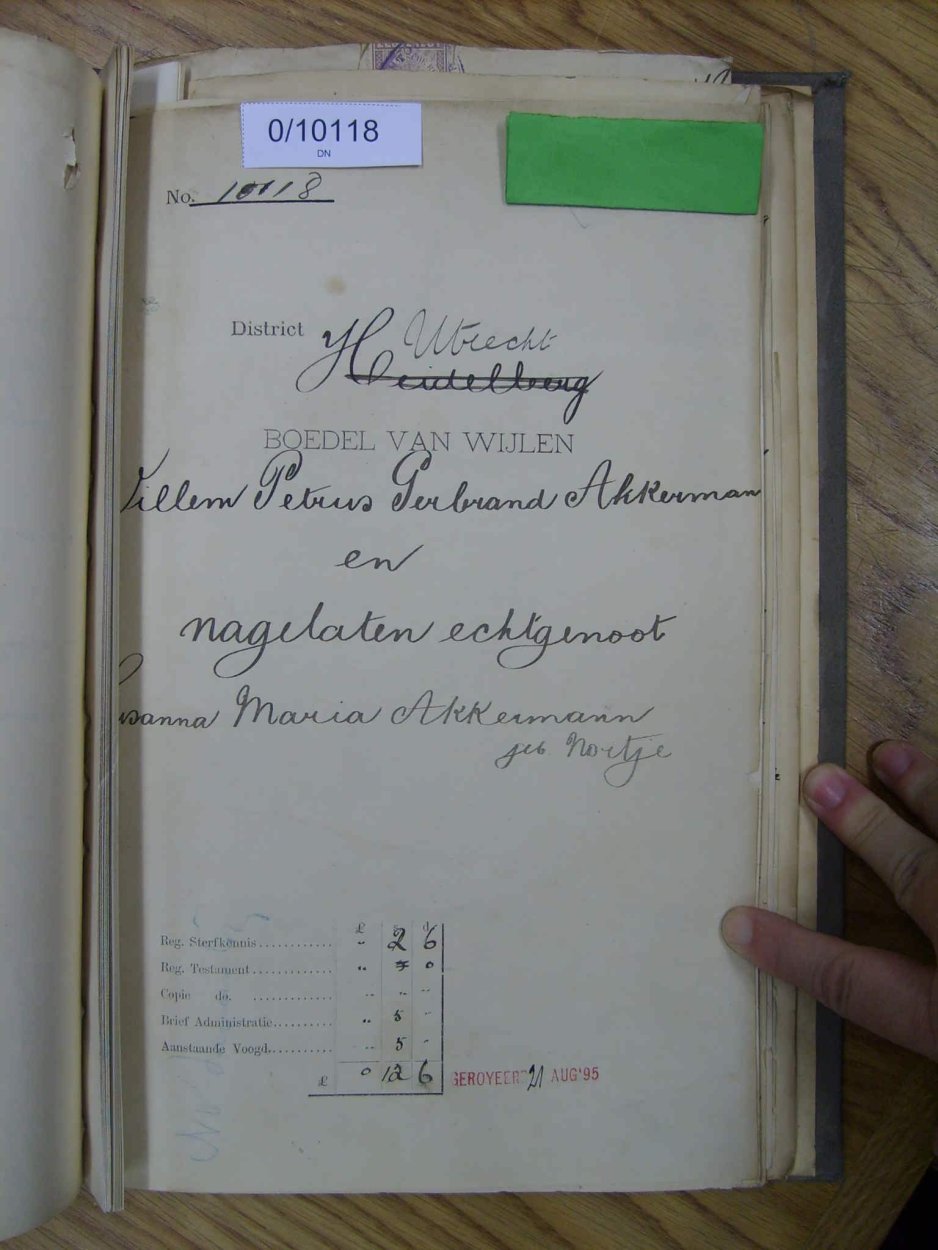 0/10118
DN
No. 10118
District Utrecht
Heidelberg
BOEDEL VAN WIJLEN
Willem Petrus Gerbrand Akkerman
en
nagelaten echtgenoot
usanna Maria Akkermann
geb Nortje
£ s d
Reg. Sterfkennis............ " 2 6
Reg. Testament............ " 0
Copie do. ............ " " "
Brief Administratie.......... " 5 "
Aanstaande Voogd.......... " 5 "
£ 0 12 6 GEROYEERD 21 AUG'95